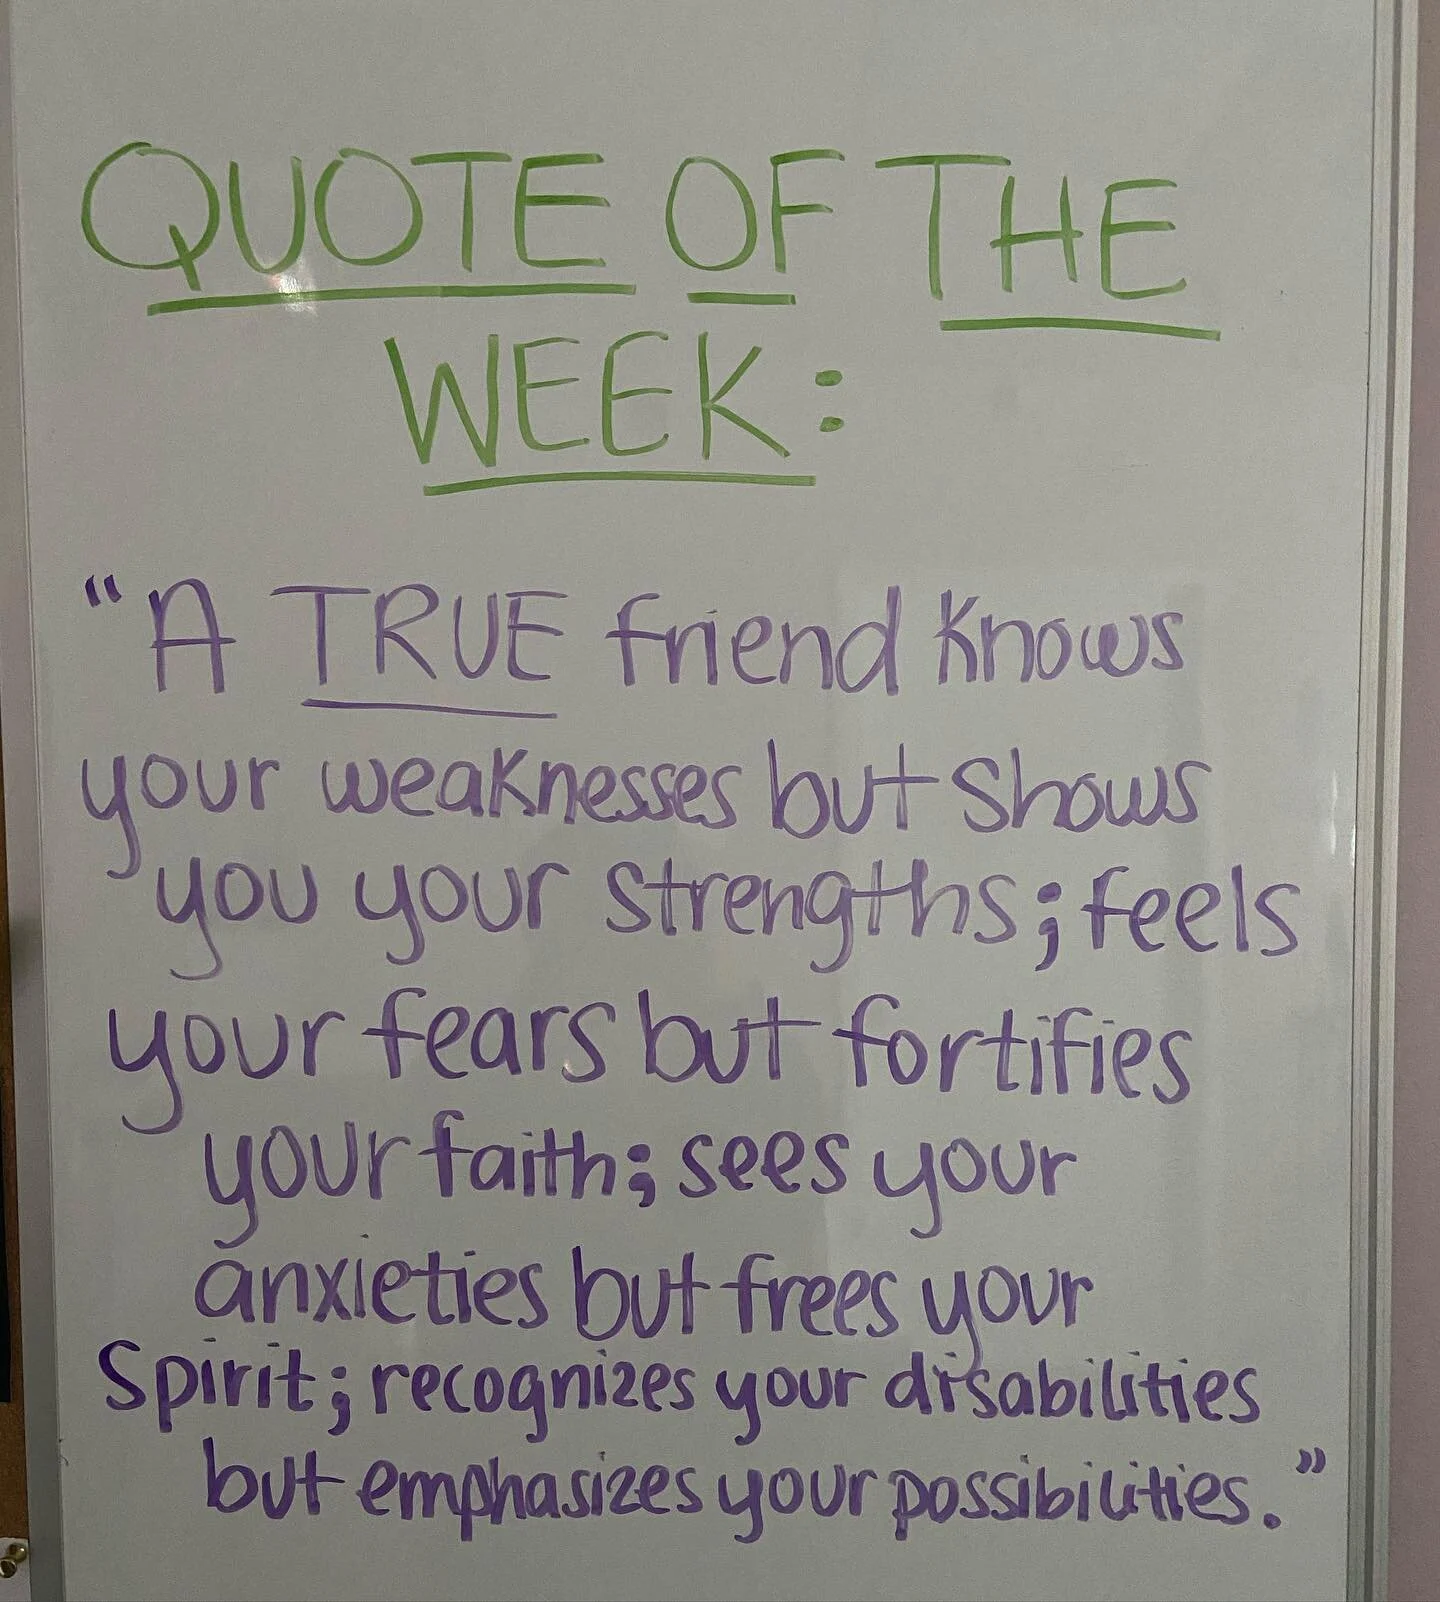 QUOTE OF THE
WEEK:
“A TRUE friend knows
your weaknesses but shows
you your strengths; feels
your fears but fortifies
your faith; sees your
anxieties but frees your
Spirit; recognizes your disabilities
but emphasizes your possibilities.”